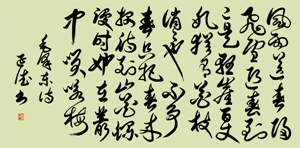 风雨送春归
飞雪迎春到
已是悬崖百丈
冰犹有花枝
俏俏也不争
春只把春来
报待到山花烂
漫时她在丛
中笑咏梅
毛泽东诗